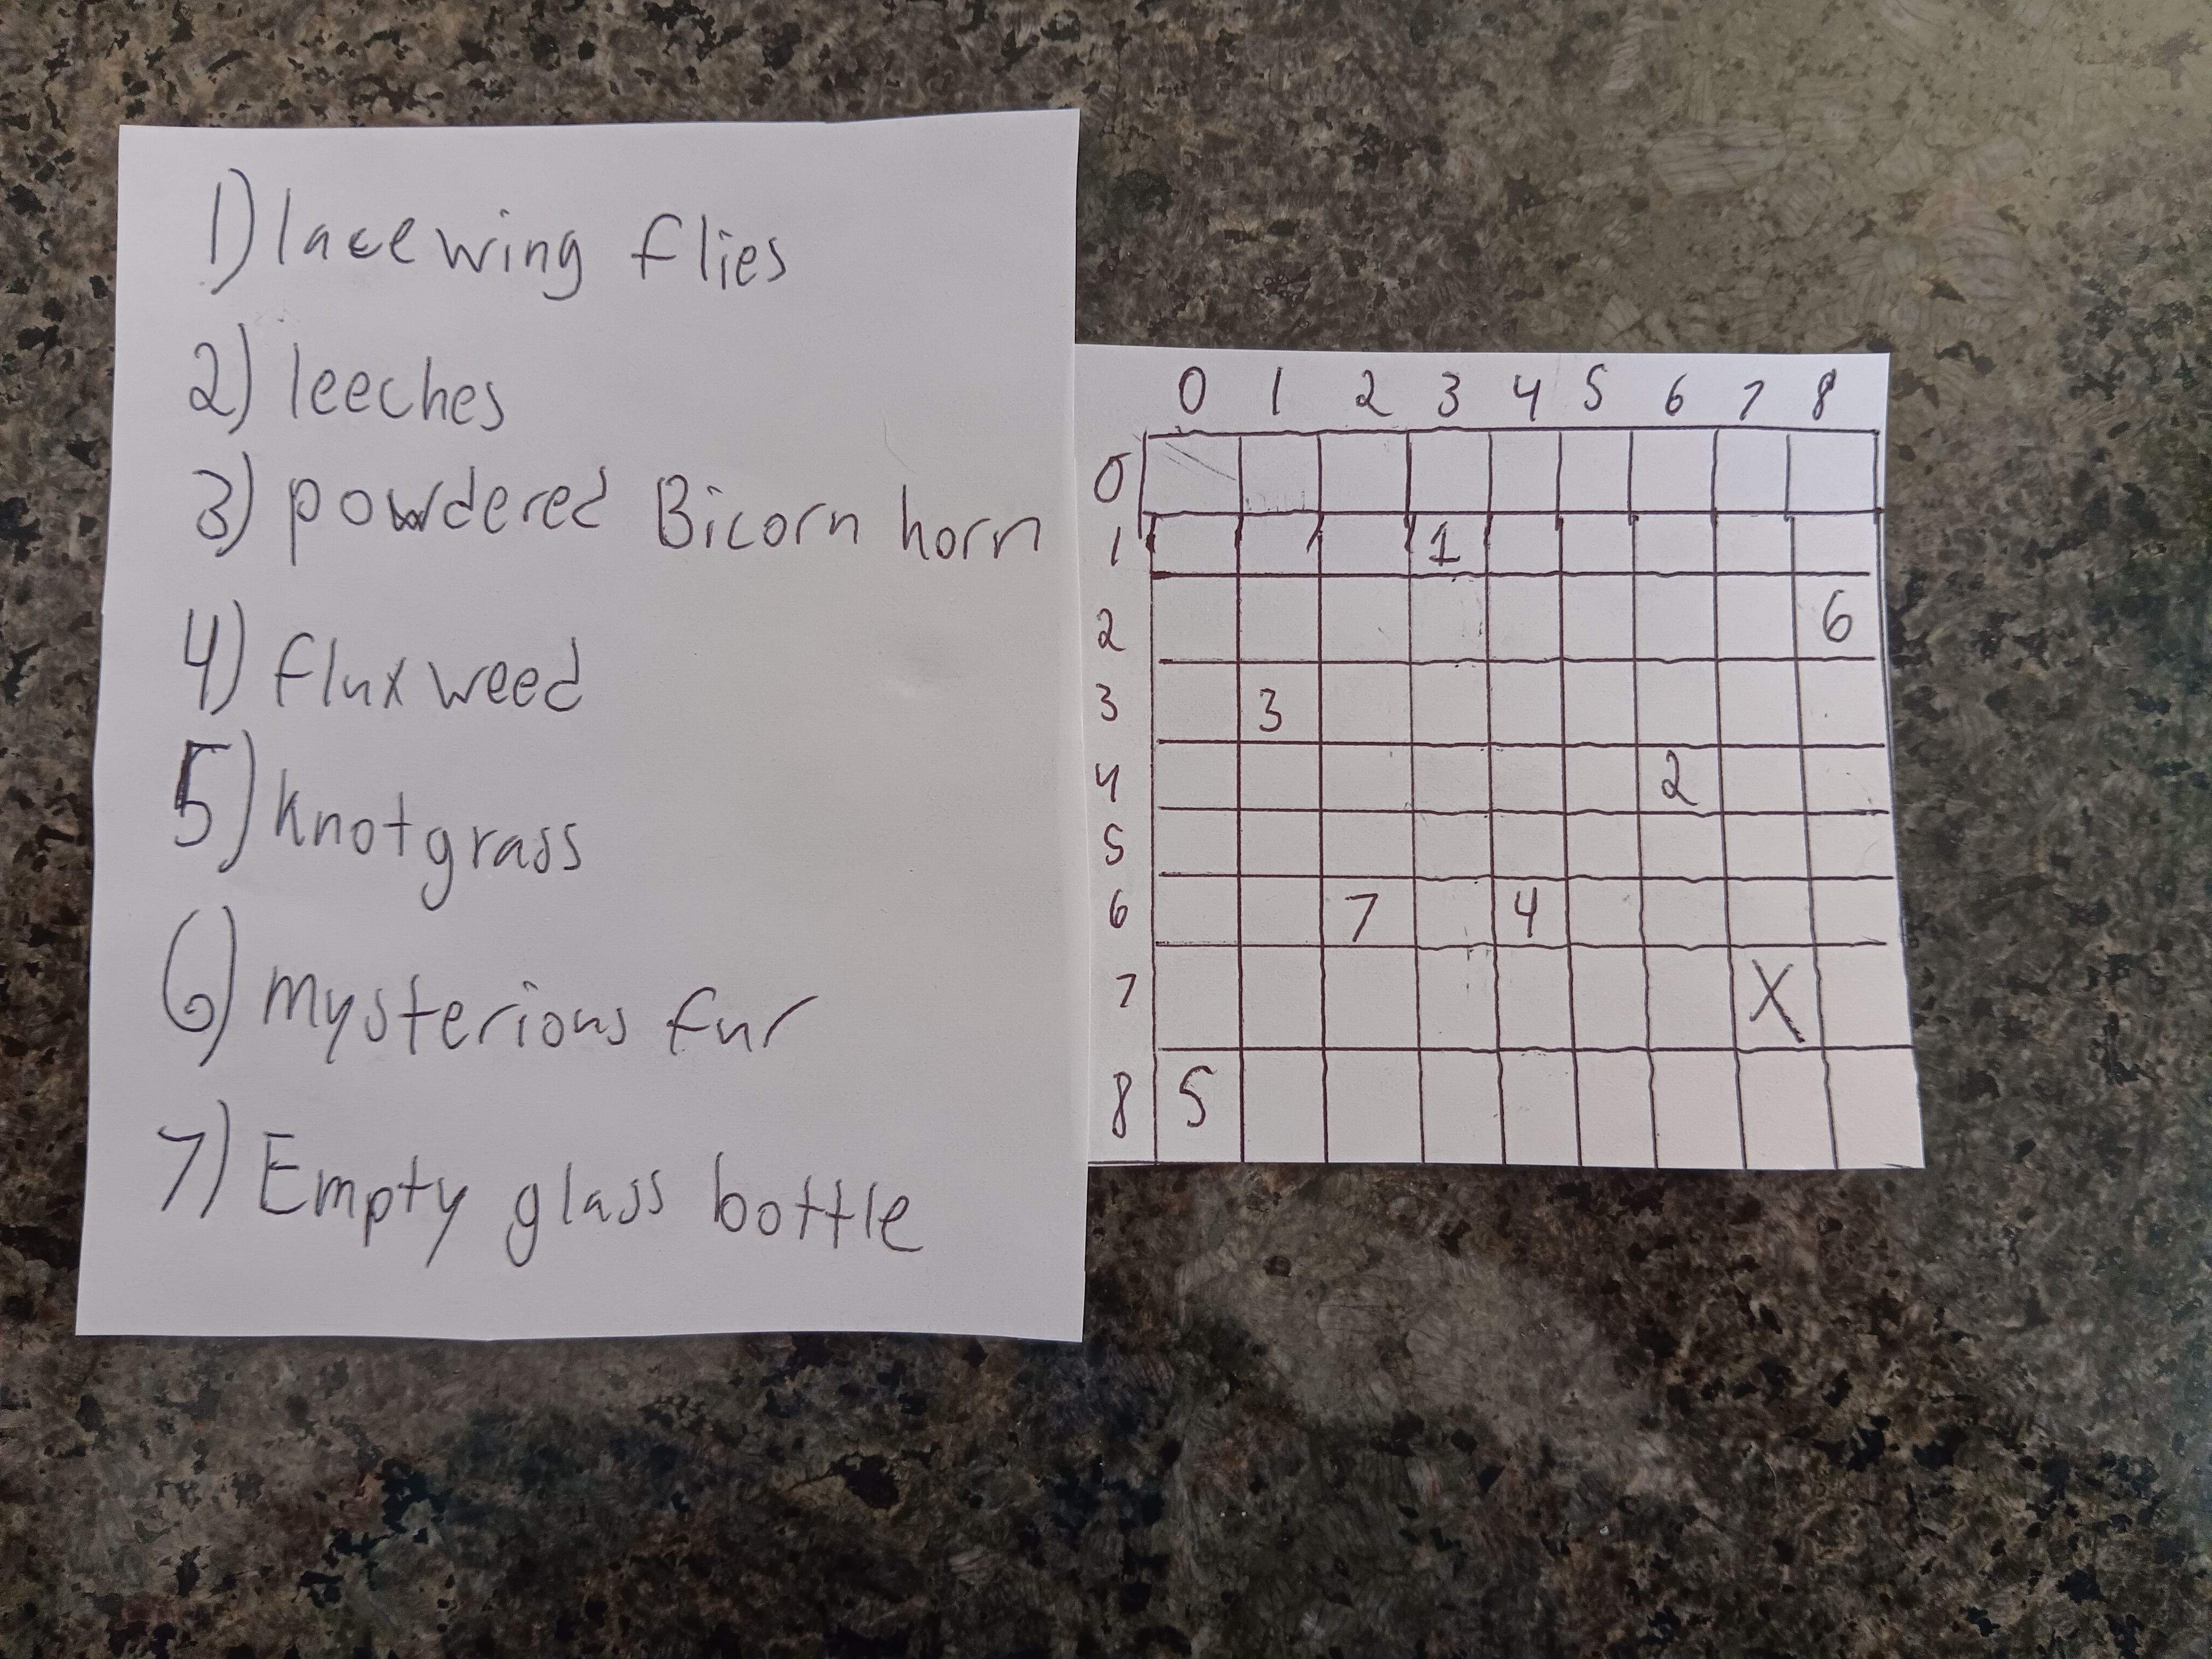 1) lacewing flies
2) leeches
3) powdered Bicorn horn
4) fluxweed
5) knotgrass
6) mysterious fur
7) Empty glass bottle
0 1 2 3 4 5 6 7 8
0
1 1
2 6
3 3
4 2
5
6 7 4
7 X
8 5